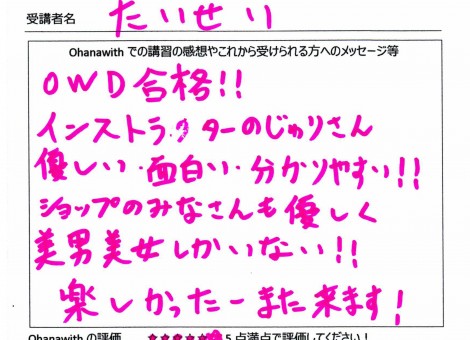 受講者名 たいせい
Ohanawith での講習の感想やこれから受けられる方へのメッセージ等
OWD合格!!
インストラクターのじゅりさん
優しい・面白い・分かりやすい!!
ショップのみなさんも優しく
美男美女しかいない!!
楽しかったーまた来ます!
Ohanawith の評価 ★★★★★ 5点満点で評価してください!